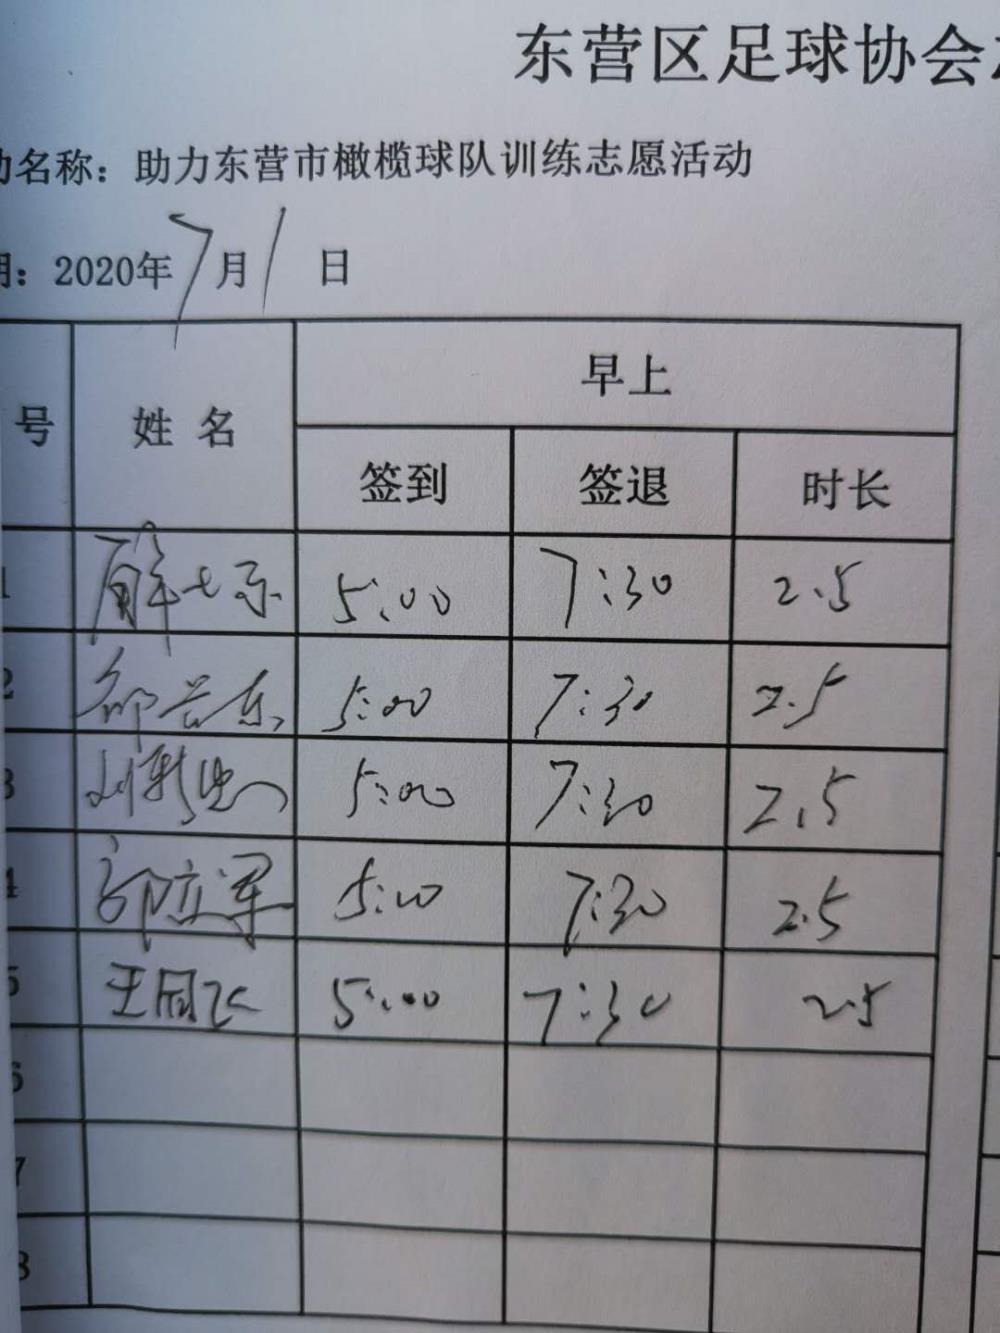 东营区足球协会
名称：助力东营市橄榄球队训练志愿活动
期：2020年7月1日
号 姓 名 早上
签到 签退 时长
1 5:00 7:30 2.5
2 5:00 7:30 2.5
3 5:00 7:30 2.5
4 郭立军 5:00 7:30 2.5
5 王国飞 5:00 7:30 2.5
6
7
8